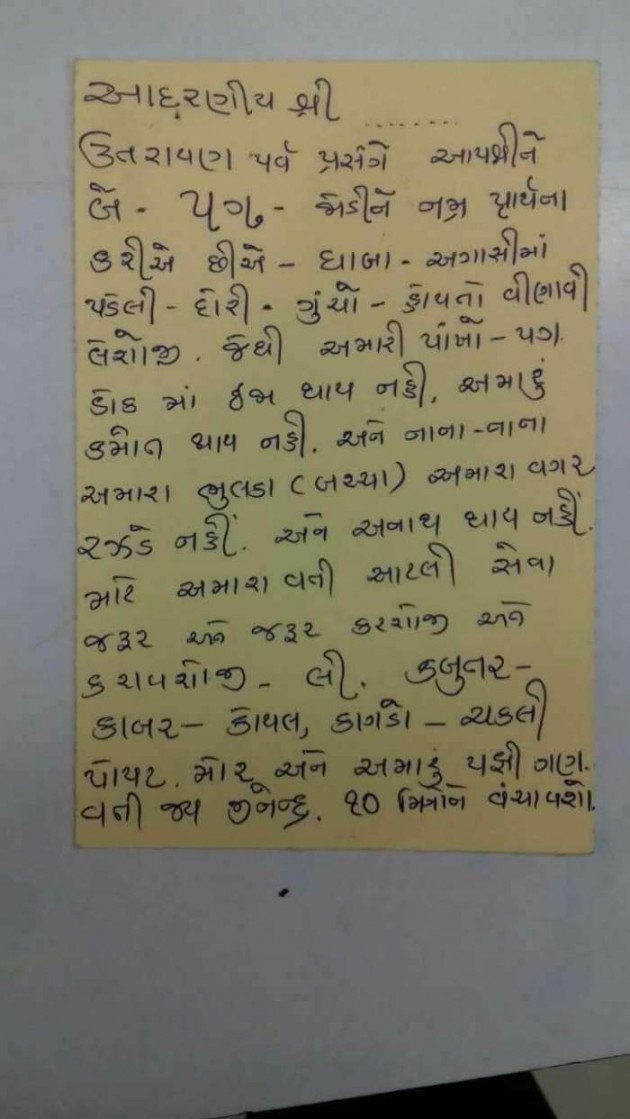 આદરણીય શ્રી ........
ઉતરાયણ પર્વ પ્રસંગે આપશ્રીને
બે - પગ - જોડીને નમ્ર પ્રાર્થના
કરીએ છીએ - ધાબા - અગાસીમાં
પડેલી - દોરી - ગુંચો - હોયતો વીણાવી
લેશોજી. જેથી અમારી પાંખો - પગ
ડોક માં ઇજા થાય નહી, અમારું
કમોત થાય નહી. અને નાના - નાના
અમારા ભુલકા (બચ્ચા) અમારા વગર
રઝડે નહીં. અને અનાથ થાય નહીં.
માટે અમારા વતી આટલી સેવા
જરૂર અને જરૂર કરશોજી અને
કરાવશોજી - લી. કબુતર -
કાબર - કોયલ, કાગડો - ચકલી
પોપટ. મોર અને અમારું પક્ષી ગણ.
વતી જય જીનેન્દ્ર. ૧૦ મિત્રોને વંચાવશો.